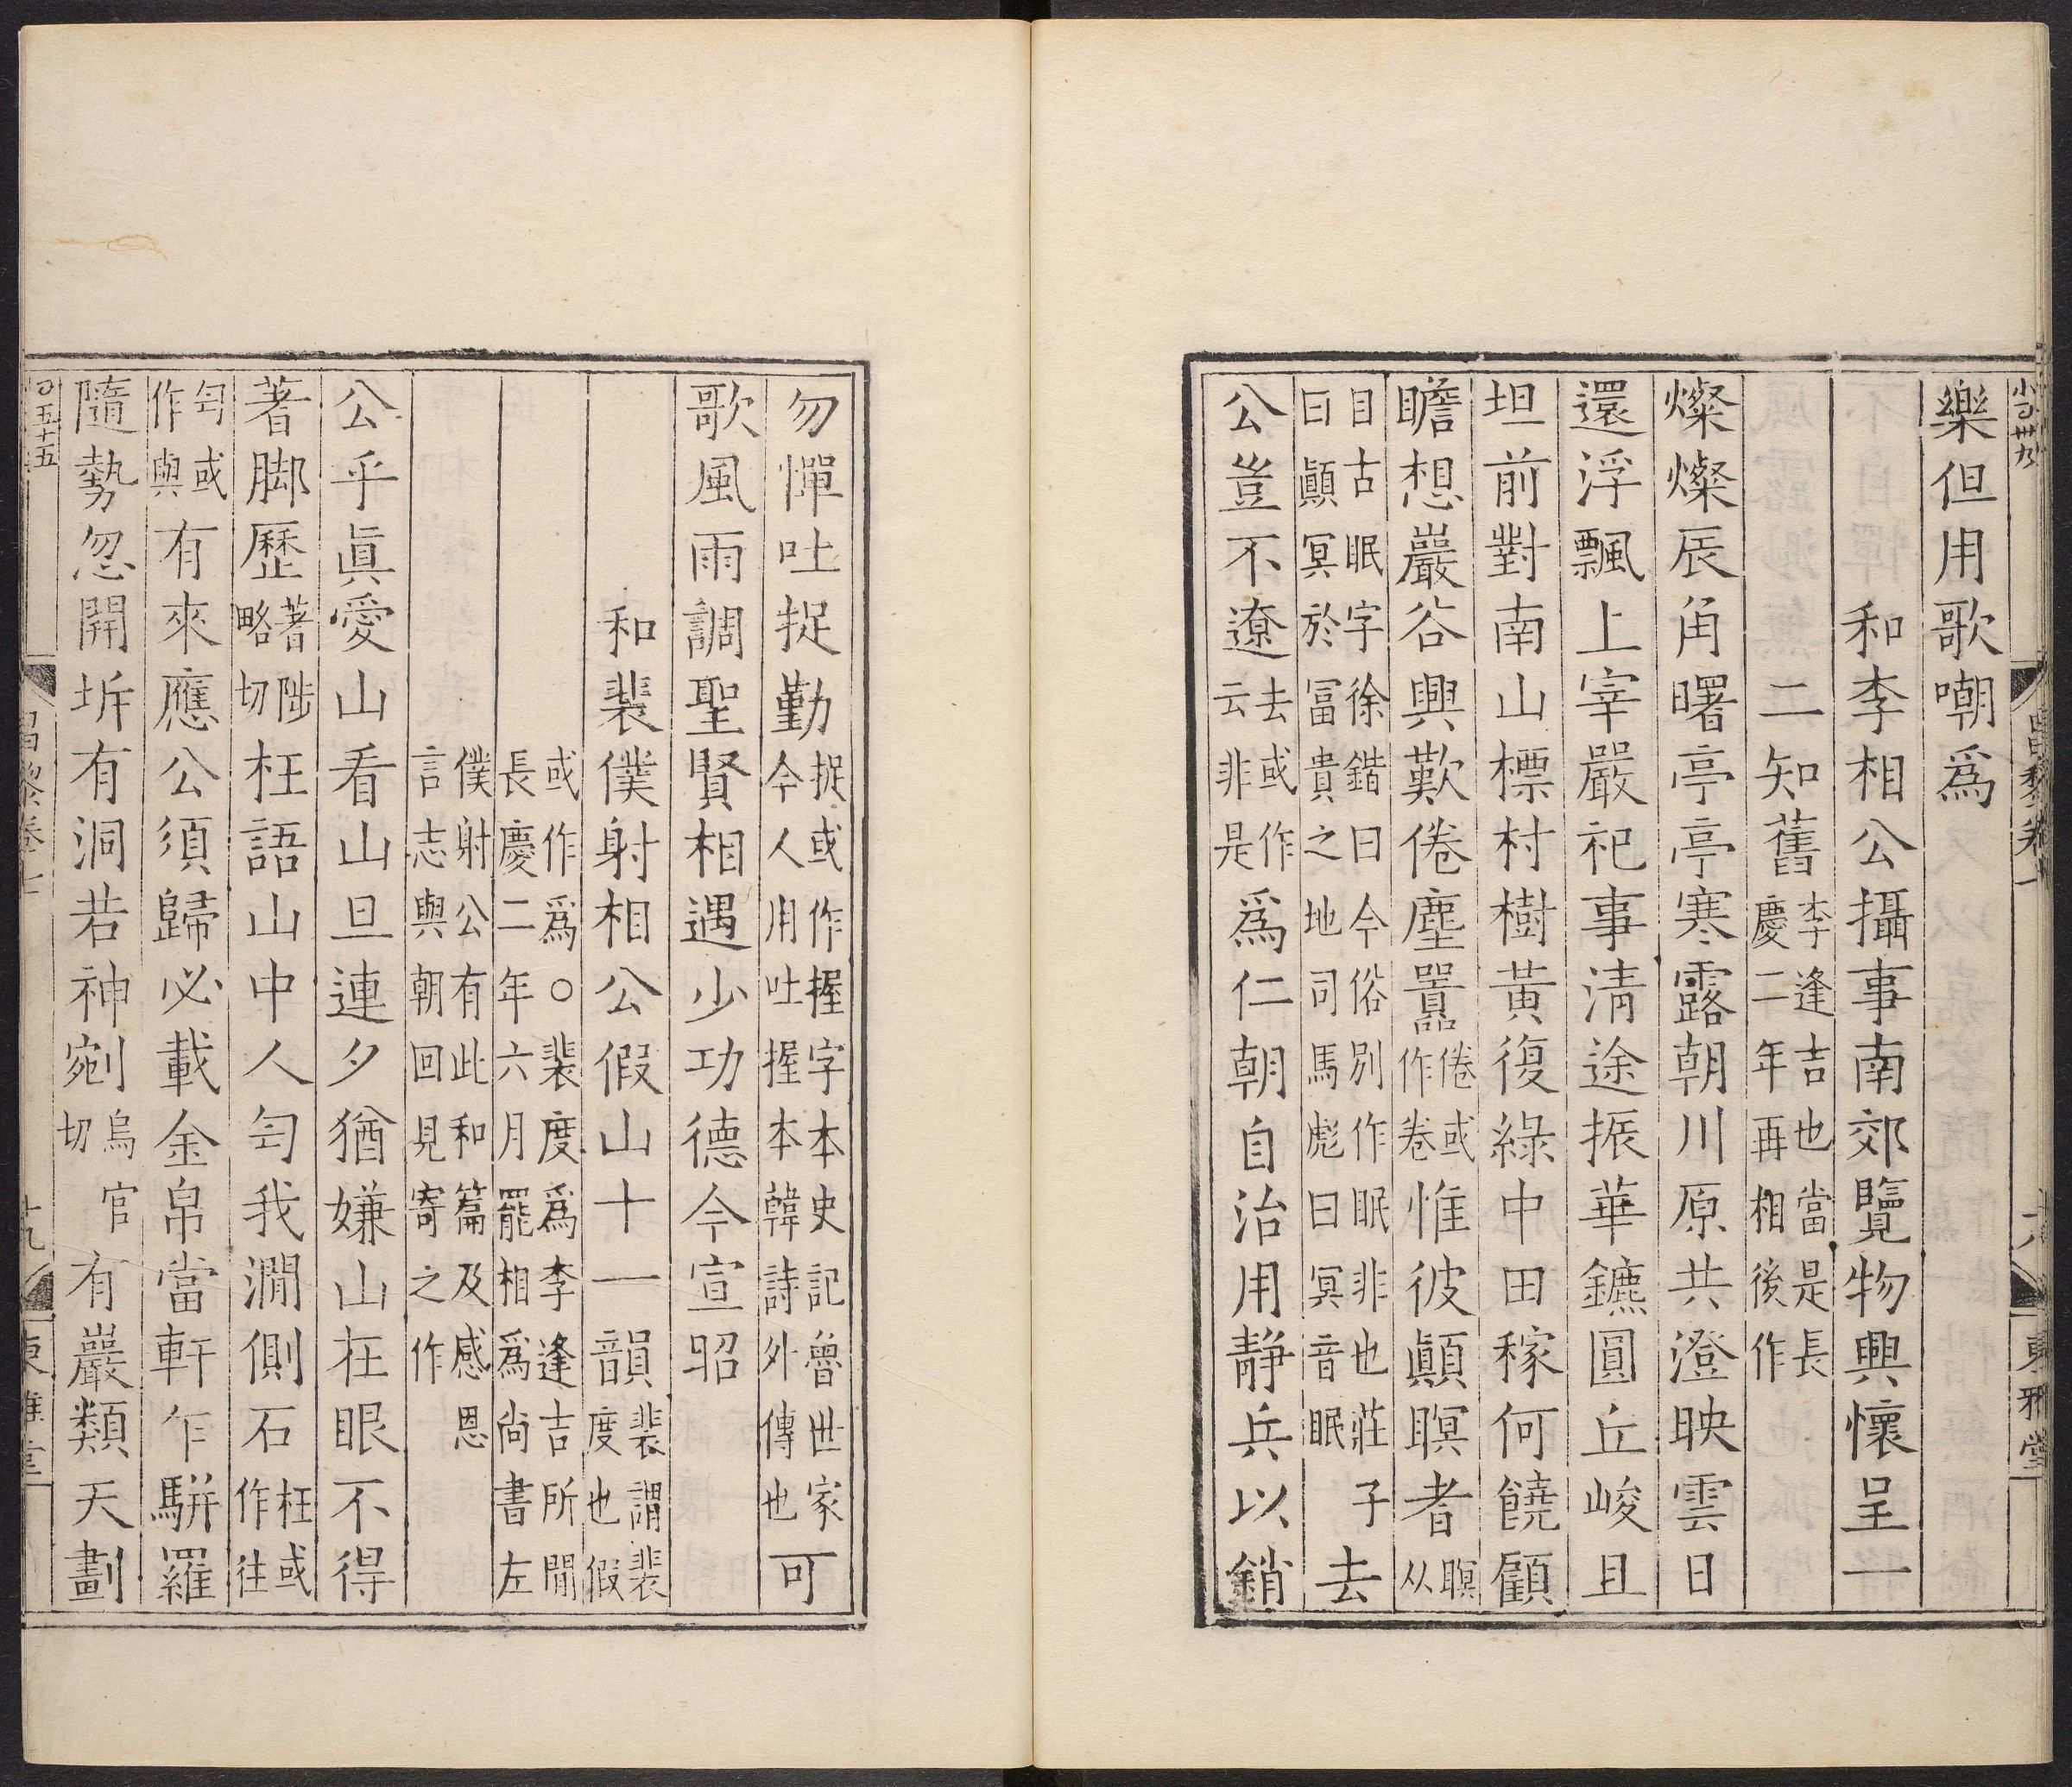 樂但用歌嘲爲
和李相公攝事南郊覽物興懷呈一
二知舊李逢吉也當是長慶二年再相後作
燦燦辰角曙亭亭寒露朝川原共澄映雲日
還浮飄上宰嚴祀事清途振華鑣圓丘峻且
坦前對南山標村樹黃復綠中田稼何饒顧
瞻想巖谷興歎倦塵囂倦或作卷惟彼顚瞑者瞑从
目古眠字徐鍇曰今俗別作眠非也莊子曰顚冥於富貴之地司馬彪曰冥音眠去
公豈不遼去或作云非是爲仁朝自治用靜兵以銷
勿憚吐捉勤捉或作握字本史記魯世家今人用吐握本韓詩外傳也可
歌風雨調聖賢相遇少功德今宣昭
和裴僕射相公假山十一韻裴謂裴度也假
或作爲○裴度爲李逢吉所閒長慶二年六月罷相爲尚書左
僕射公有此和篇及感恩言志與朝回見寄之作
公乎眞愛山看山旦連夕猶嫌山在眼不得
著脚歷著陟略切枉語山中人匄我澗側石枉或作往
匄或作與有來應公須歸必載金帛當軒乍駢羅
隨勢忽開坼有洞若神剜烏官切有巖類天劃
昌黎卷七
十九
東雅堂